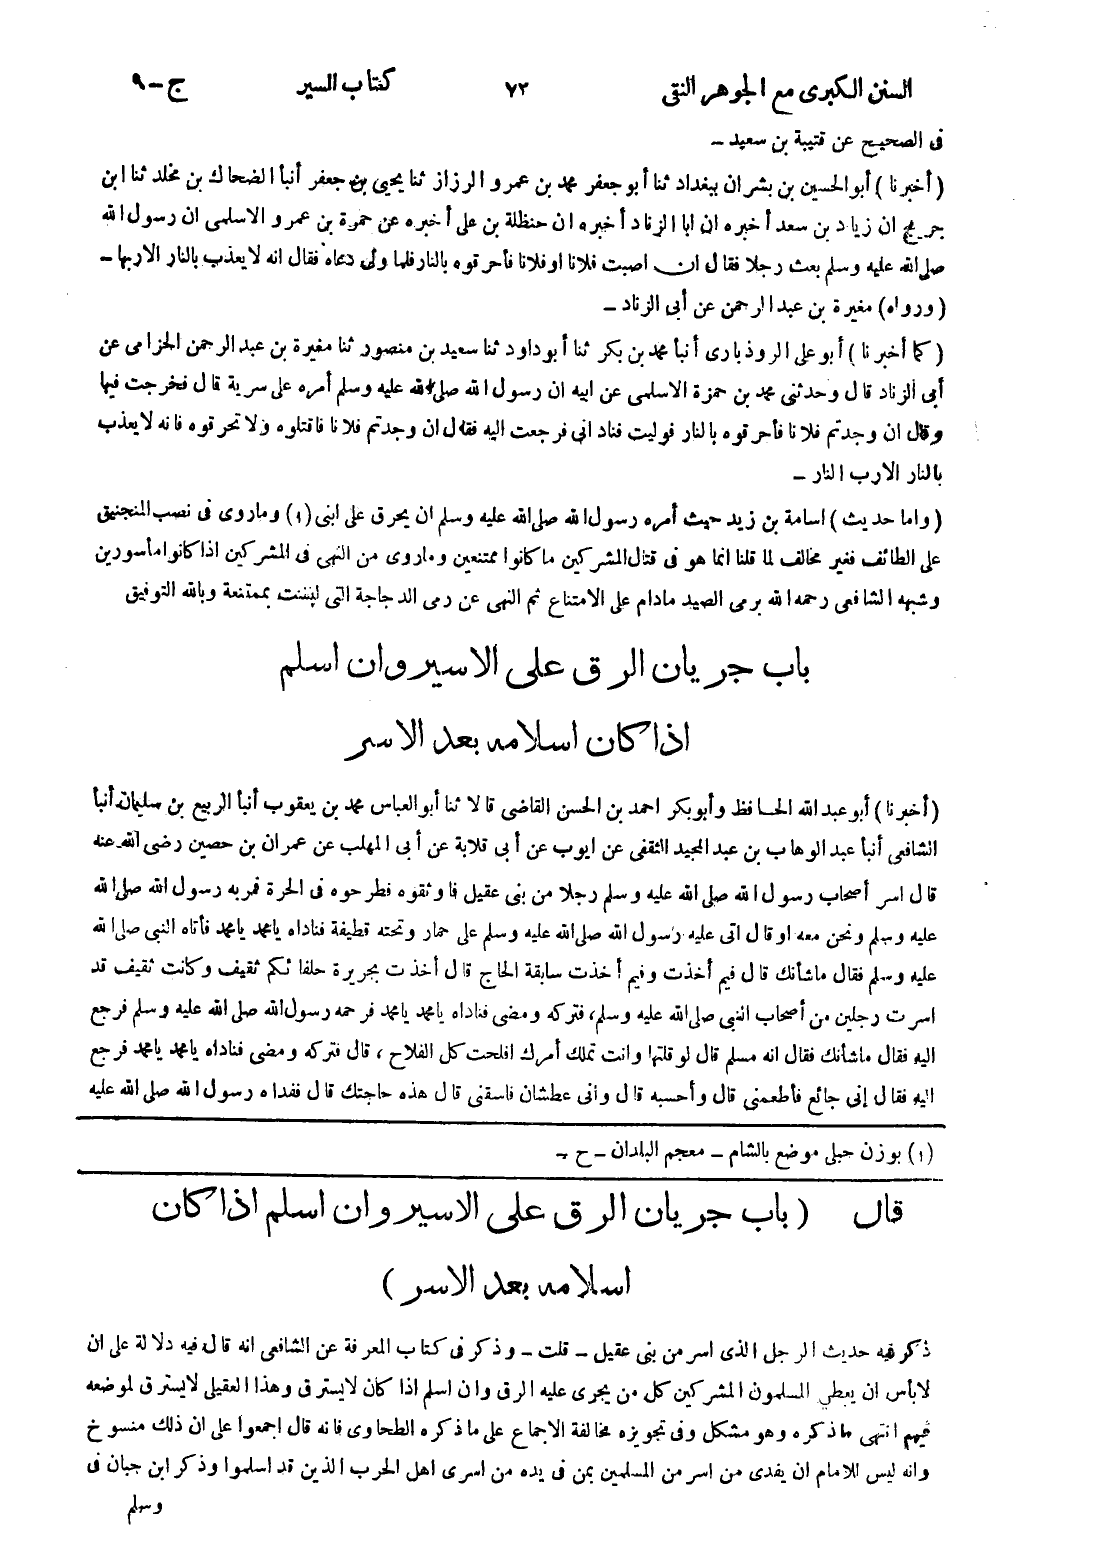 السنن الكبرى مع الجوهر النقى ٧٣ كتاب السير ج ـ ٩
فى الصحيح عن قتيبة بن سعيد ـ
( أخبرنا ) أبو الحسين بن بشران ببغداد ثنا أبو جعفر محمد بن عمرو الرزاز ثنا يحيى بن جعفر أنبأ الضحاك بن مخلد ثنا ابن
جريج ان زياد بن سعد أخبره ان ابا الزناد أخبره ان حنظلة بن على أخبره عن حمزة بن عمرو الاسلمى ان رسول الله
صلى الله عليه وسلم بعث رجلا فقال ان اصبت فلانا او فلانا فأحرقوه بالنار فلما ولى دعاه فقال انه لا يعذب بالنار الا ربها ـ
( ورواه ) مغيرة بن عبد الرحمن عن أبى الزناد ـ
( كما أخبرنا ) أبو على الروذبارى أنبأ محمد بن بكر ثنا أبو داود ثنا سعيد بن منصور ثنا مغيرة بن عبد الرحمن الحزامى عن
أبى الزناد قال وحدثنى محمد بن حمزة الاسلمى عن ابيه ان رسول الله صلى الله عليه وسلم أمره على سرية قال فخرجت فيها
وقال ان وجدتم فلانا فأحرقوه بالنار فوليت فنادانى فرجعت اليه فقال ان وجدتم فلانا فاقتلوه ولا تحرقوه فانه لا يعذب
بالنار الا رب النار ـ
( واما حديث ) اسامة بن زيد حيث أمره رسول الله صلى الله عليه وسلم ان يحرق على ابنى (١) وما روى فى نصب المنجنيق
على الطائف فغير مخالف لما قلنا انما هو فى قتال المشركين ما كانوا ممتنعين وما روى من النهى فى المشركين اذا كانوا مأسورين
وشبهه الشافعى رحمه الله برمى الصيد مادام على الامتناع ثم النهى عن رمى الدجاجة التى ليست بممتنعة وبالله التوفيق
باب جريان الرق على الاسير وان اسلم
اذا كان اسلامه بعد الاسر
( أخبرنا ) أبو عبد الله الحافظ وأبو بكر احمد بن الحسن القاضى قالا ثنا أبو العباس محمد بن يعقوب أنبأ الربيع بن سليمان أنبأ
الشافعى أنبأ عبد الوهاب بن عبد المجيد الثقفى عن ايوب عن أبى قلابة عن أبى المهلب عن عمران بن حصين رضى الله عنه
قال اسر أصحاب رسول الله صلى الله عليه وسلم رجلا من بنى عقيل فاوثقوه فطرحوه فى الحرة فمر به رسول الله صلى الله
عليه وسلم ونحن معه او قال اتى عليه رسول الله صلى الله عليه وسلم على حمار وتحته قطيفة فناداه يا محمد يا محمد فأتاه النبى صلى الله
عليه وسلم فقال ما شأنك قال فيم أخذت وفيم أخذت سابقة الحاج قال أخذت بجريرة حلفائكم ثقيف وكانت ثقيف قد
اسرت رجلين من أصحاب النبى صلى الله عليه وسلم، فتركه ومضى فناداه يا محمد يا محمد فرحمه رسول الله صلى الله عليه وسلم فرجع
اليه فقال ما شأنك فقال انه مسلم قال لو قلتها وانت تملك أمرك افلحت كل الفلاح ، قال فتركه ومضى فناداه يا محمد يا محمد فرجع
اليه فقال إنى جائع فأطعمنى قال وأحسبه قال وانى عطشان فاسقنى قال هذه حاجتك قال ففداه رسول الله صلى الله عليه
(١) بوزن حبلى موضع بالشام ـ معجم البلدان ـ ح ـ
قال ( باب جريان الرق على الاسير وان اسلم اذا كان
اسلامه بعد الاسر )
ذكر فيه حديث الرجل الذى اسر من بنى عقيل ـ قلت ـ وذكر فى كتاب المعرفة عن الشافعى انه قال فيه دلالة على ان
لا بأس ان يعطى المسلمون المشركين كل من يجرى عليه الرق وان اسلم اذا كان لا يسترق وهذا العقيلى لا يسترق لموضعه
فيهم انتهى ما ذكره وهو مشكل وفى تجويزه مخالفة الاجماع على ما ذكره الطحاوى فانه قال اجمعوا على ان ذلك منسوخ
وانه ليس للامام ان يفدى من اسر من المسلمين بمن فى يده من اسرى اهل الحرب الذين قد اسلموا وذكر ابن حبان فى
وسلم